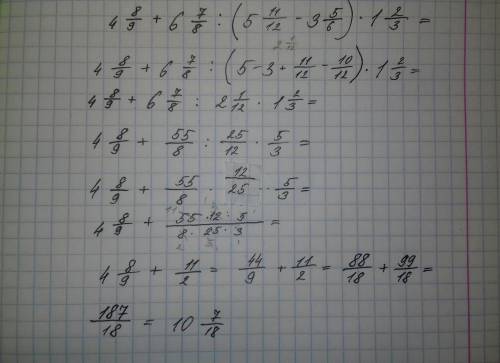 4 8/9 + 6 7/8 : (5 11/12 - 3 5/6) · 1 2/3 =
2 1/12
4 8/9 + 6 7/8 : (5 - 3 + 11/12 - 10/12) · 1 2/3 =
4 8/9 + 6 7/8 : 2 1/12 · 1 2/3 =
4 8/9 + 55/8 : 25/12 · 5/3 =
4 8/9 + 55/8 · 12/25 · 5/3 =
4 8/9 + 55 · 12 · 5/8 · 25 · 3 =
4 8/9 + 11/2 = 44/9 + 11/2 = 88/18 + 99/18 =
187/18 = 10 7/18